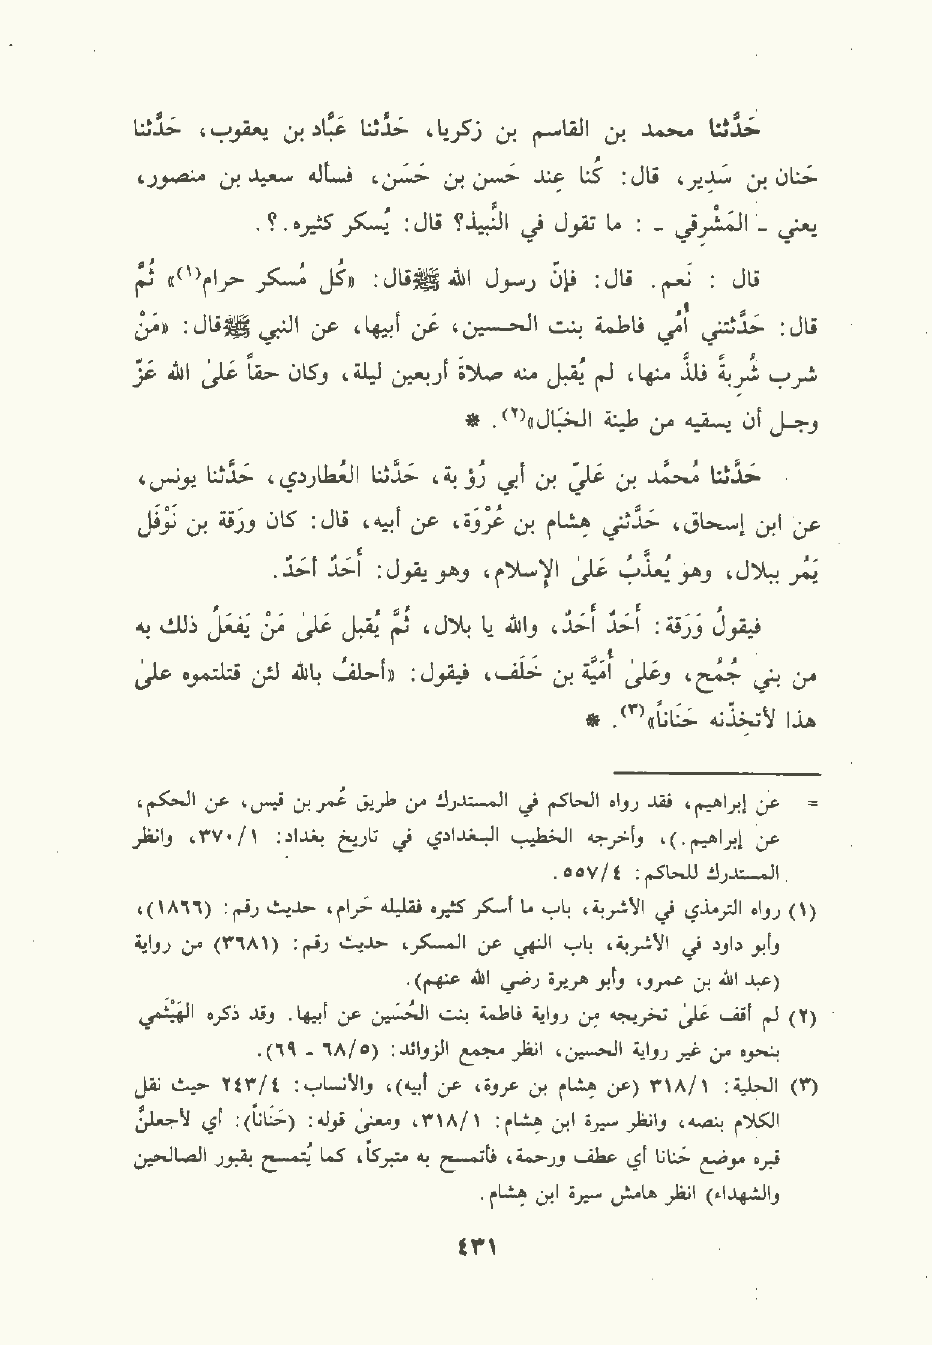 حَدَّثنا محمد بن القاسم بن زكريا، حَدَّثنا عَبَّاد بن يعقوب، حَدَّثنا
حَنان بن سَدِير، قال: كُنا عند حسن بن حَسَن، فسأله سعيد بن منصور،
يعني - المَشْرِقي - : ما تقول في النَّبيذ؟ قال: يُسكر كثيره.؟.
قال : نَعم. قال: فإن رسول الله ﷺ قال: «كُل مُسكر حرام(١)» ثُمَّ
قال: حَدَّثتني أُمي فاطمة بنت الحسين، عن أبيها، عن النبي ﷺ قال: «مَنْ
شرب شُرِبةً فلذَّ منها، لم يُقبل منه صلاةَ أربعين ليلة، وكان حقاً علىٰ الله عَزّ
وجل أن يسقيه من طينة الخَبال»(٢). *
حَدَّثنا مُحمَّد بن عليّ بن أبي رُؤبة، حَدَّثنا العُطاردي، حَدَّثنا يونس،
عن ابن إسحاق، حَدَّثني هِشام بن عُرْوَة، عن أبيه، قال: كان ورقة بن نَوْفَل
يَمُر ببلال، وهو يُعذَّبُ علىٰ الإِسلام، وهو يقول: أَحَدٌ أحَدٌ.
فيقولُ وَرَقة: أحَدٌ أحَدٌ، والله يا بلال، ثُمَّ يُقبل علىٰ مَنْ يَفعَلُ ذلك به
من بني جُمَح، وعلىٰ أُمَيَّة بن خَلَف، فيقول: «أحلفُ بالله لئن قتلتموه علىٰ
هذا لأتخِذّنه حَنَاناً»(٣). *
= عن إبراهيم، فقد رواه الحاكم في المستدرك من طريق عُمر بن قيس، عن الحكم،
عن إبراهيم.)، وأخرجه الخطيب البغدادي في تاريخ بغداد: ١/٣٧٠، وانظر
المستدرك للحاكم: ٤/٥٥٧.
(١) رواه الترمذي في الأشربة، باب ما أسكر كثيره فقليله حَرام، حديث رقم: (١٨٦٦)،
وأبو داود في الأشربة، باب النهي عن المسكر، حديث رقم: (٣٦٨١) من رواية
(عبد الله بن عمرو، وأبو هريرة رضي الله عنهم).
(٢) لم أقف علىٰ تخريجه من رواية فاطمة بنت الحُسَين عن أبيها. وقد ذكره الهَيْثَمي
بنحوه من غير رواية الحسين، انظر مجمع الزوائد: (٥/٦٨ - ٦٩).
(٣) الحلية: ١/٣١٨ (عن هِشام بن عروة، عن أبيه)، والأنساب: ٤/٢٤٣ حيث نقل
الكلام بنصه، وانظر سيرة ابن هِشام: ١/٣١٨، ومعنىٰ قوله: (حَنَاناً): أي لأجعلنّ
قبره موضع حَنانا أي عطف ورحمة، فأتمسح به متبركاً، كما يُتمسح بقبور الصالحين
والشهداء) انظر هامش سيرة ابن هِشام.
٤٣١